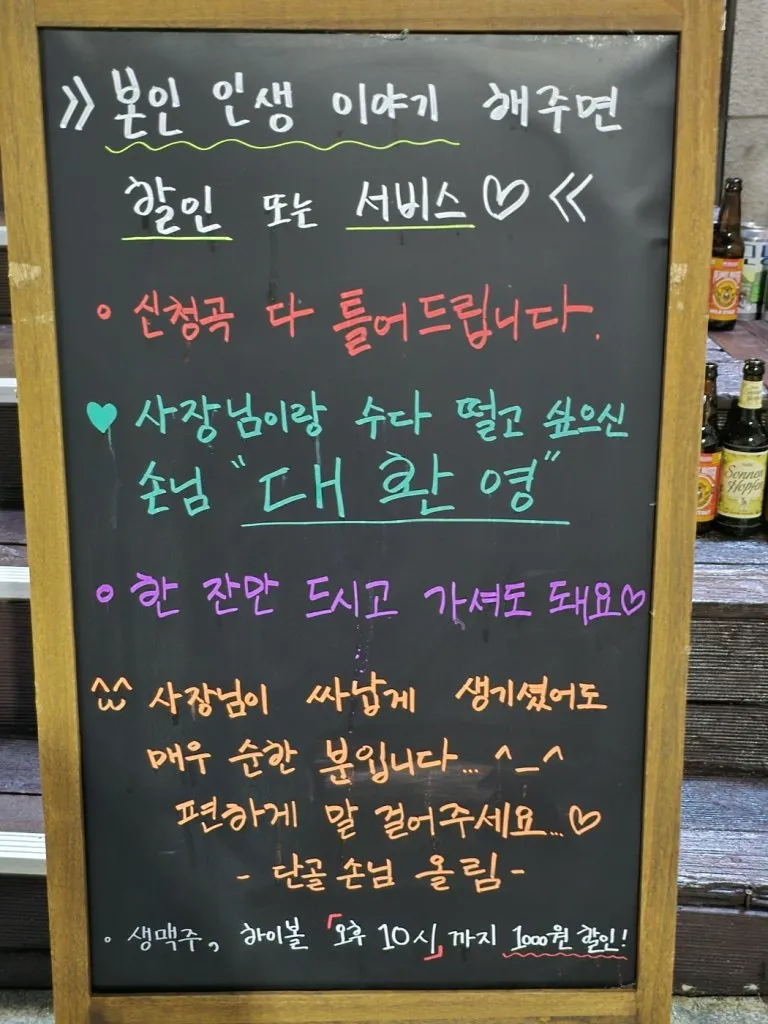 » 본인 인생 이야기 해주면
할인 또는 서비스♡ «
◦ 신청곡 다 틀어드립니다.
♥ 사장님이랑 수다 떨고 싶으신
손님 "대환영"
◦ 한 잔만 드시고 가셔도 돼요♡
^ω^ 사장님이 싸납게 생기셨어도
매우 순한 분입니다... ^_^
편하게 말 걸어주세요...♡
- 단골 손님 올림 -
• 생맥주, 하이볼 「오후 10시」까지 1000원 할인!
Sonnen
Hopfen